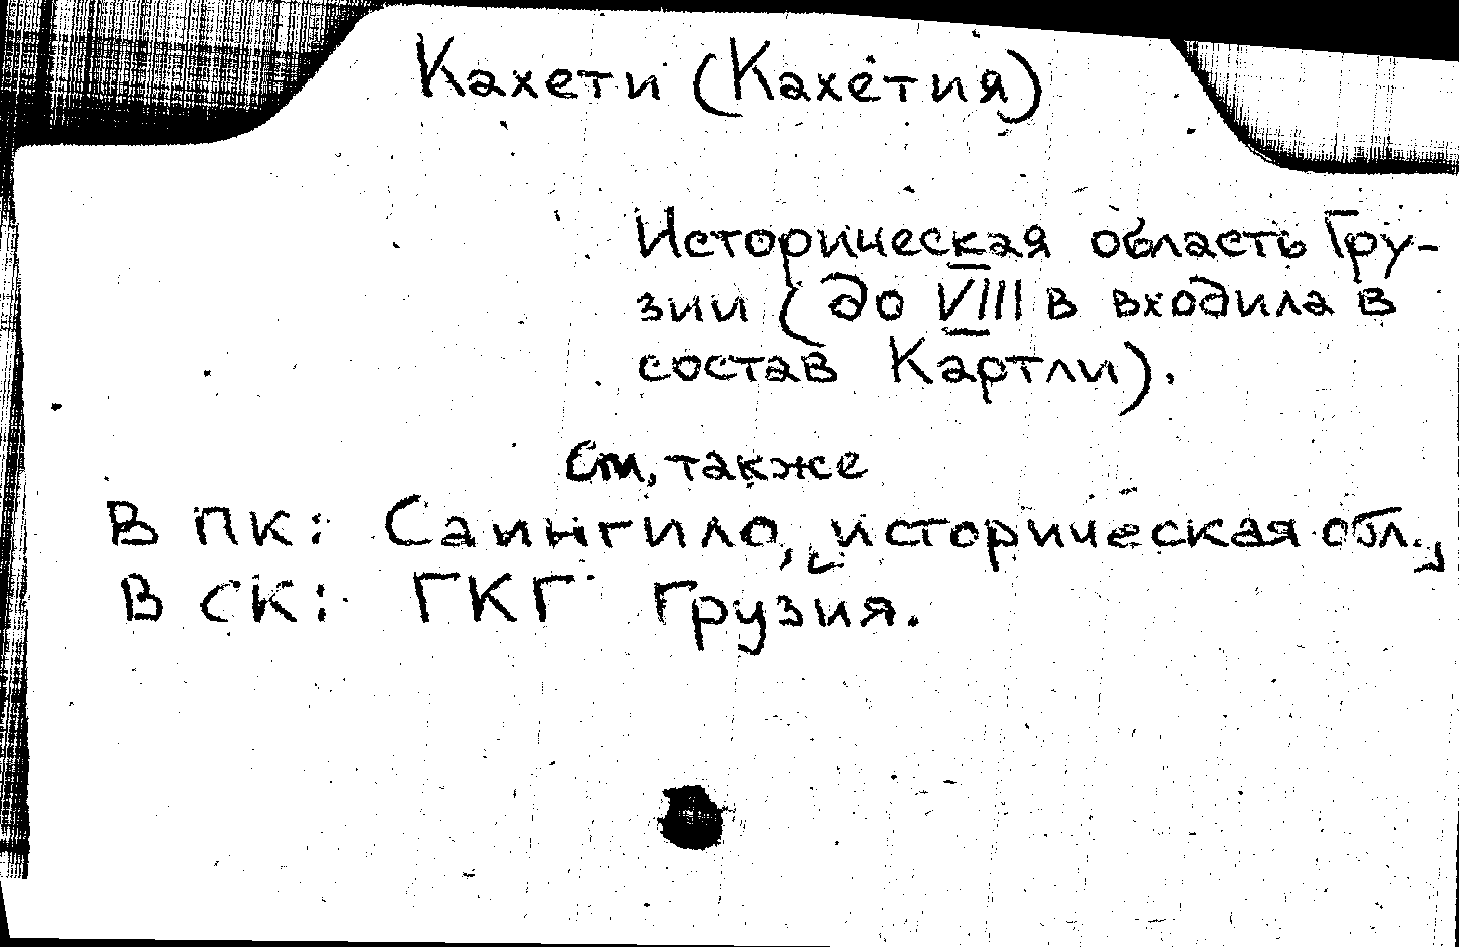 Кахети (Кахетия)
Историческая область Гру-
зии (до VIII в входила в
состав Картли).
См, также
В ПК: Саингило, историческая обл.,
В СК: ГКГ Грузия.